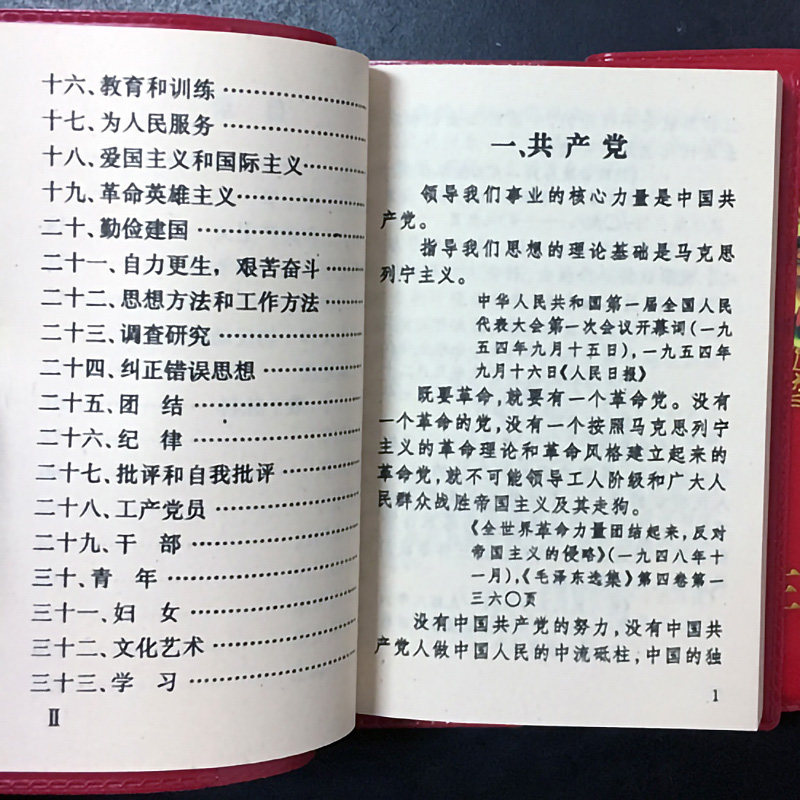 十六、教育和训练……………
十七、为人民服务……………
十八、爱国主义和国际主义……
十九、革命英雄主义…………
二十、勤俭建国………………
二十一、自力更生，艰苦奋斗……
二十二、思想方法和工作方法……
二十三、调查研究……………
二十四、纠正错误思想…………
二十五、团　结………………
二十六、纪　律………………
二十七、批评和自我批评………
二十八、工产党员……………
二十九、干　部………………
三十、青　年…………………
三十一、妇　女………………
三十二、文化艺术……………
三十三、学　习………………
II
一、共产党
领导我们事业的核心力量是中国共
产党。
指导我们思想的理论基础是马克思
列宁主义。
中华人民共和国第一届全国人民
代表大会第一次会议开幕词(一九
五四年九月十五日)，一九五四年
九月十六日《人民日报》
既要革命，就要有一个革命党。没有
一个革命的党，没有一个按照马克思列宁
主义的革命理论和革命风格建立起来的
革命党，就不可能领导工人阶级和广大人
民群众战胜帝国主义及其走狗。
《全世界革命力量团结起来，反对
帝国主义的侵略》(一九四八年十
一月)，《毛泽东选集》第四卷第一
三六〇页
没有中国共产党的努力，没有中国共
产党人做中国人民的中流砥柱，中国的独
1